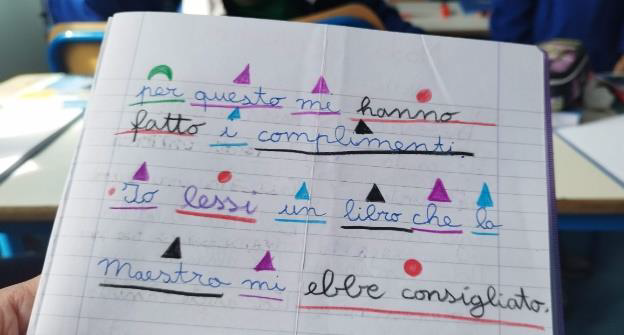 per questo mi hanno
fatto i complimenti.
Io lessi un libro che la
maestra mi ebbe consigliato.